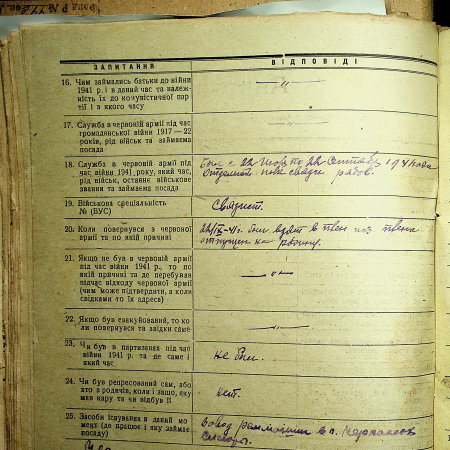 ЗАПИТАННЯ
ВІДПОВІДІ
16. Чим займались батьки до війни
1941 р. і в даний час та належ-
ність їх до комуністичної пар-
тії і з якого часу
— „ —
17. Служба в червоній армії під час
громадянської війни 1917 — 22
років, рід військ та займаєма
посада
— „ —
18. Служба в червоній армії під
час війни 1941 року, який час,
рід військ, останнє військове
звання та займаєма посада
Был с 22 по 22 1941 года
рядов.
19. Військова спеціальність
№ (ВУС)
Связист.
20. Коли повернувся з червоної
армії та по якій причині
22/IX-41г. был взят в плен из плена
отпущен на родину.
21. Якщо не був в червоній армії
під час війни 1941 р., то по
якій причині та де перебував
підчас відходу червоної армії
(чим може підтвердити, а коли
свідками то їх адреса)
— „ —
22. Якщо був евакуйований, то ко-
ли повернувся та звідки саме
— „ —
23. Чи був в партизанах під час
війни 1941 р. та де саме і
який час
не был.
24. Чи був репресований сам, або
хто з родичів, коли і защо, як
мав кару та чи відбув її
нет.
25. Засоби існування в даний мо-
мент (де працює і яку займає
посаду)
завод в г.
слесарь.